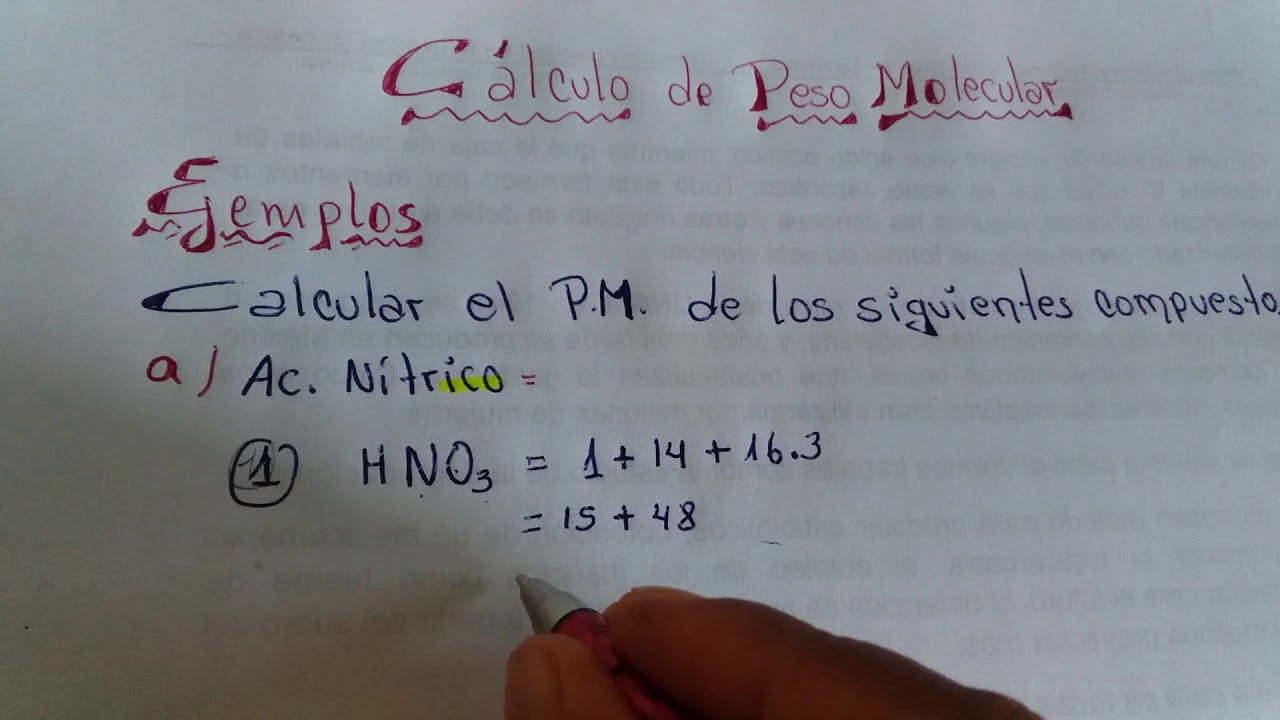 Cálculo de Peso Molecular
Ejemplos
Calcular el P.M. de los siguientes compuesto
a) Ac. Nítrico =
1 HNO₃ = 1 + 14 + 16.3
= 15 + 48